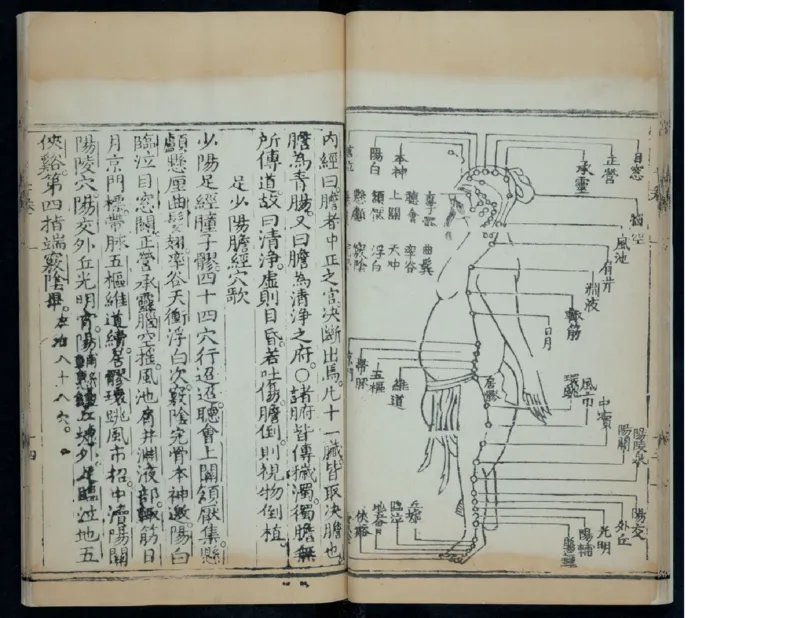 目窓
正營
承靈
本神
陽白
腦空
風池
肩井
淵液
輒筋
日月
聽會
上關
頷厭
懸顱
曲鬓
率谷
天冲
浮白
竅陰
帶脉
五樞
維道
居髎
環跳
風市
中瀆
陽關
陽陵泉
陽交
外丘
光明
陽輔
懸鍾
丘墟
臨泣
地五會
俠谿
內經曰膽者中正之官决斷出焉凡十一臟皆取决膽也
膽為青腸。又曰膽為清淨之府。○諸腑皆傳穢濁獨膽無
所傳道故曰清淨。虛則目昏。若吐傷膽倒。則視物倒植。
足少陽膽經穴歌
少陽足經瞳子髎。四十四穴行迢迢。聽會上關頷厭集。懸
顱懸厘曲髩翅。率谷天衝浮白次。竅陰完骨本神邀。陽白
臨泣目窓闢。正營承靈腦空搖。風池肩井淵液部。輒筋日
月京門標。帶脉五樞維道續。居髎環跳風市招。中瀆陽關
陽陵穴。陽交外丘光明宵。陽輔懸鍾丘墟外。足臨泣地五
俠谿。第四指端竅陰畢。左右八十八穴。